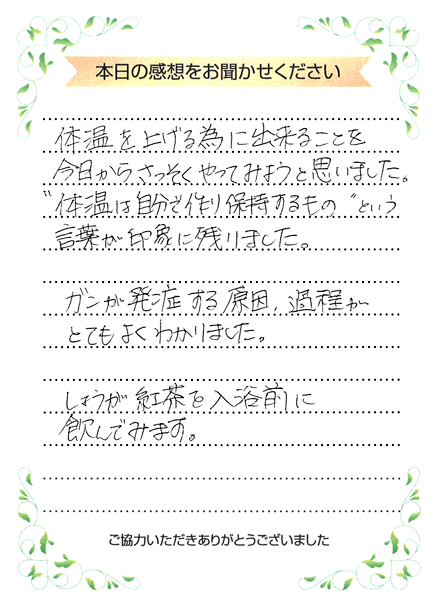 本日の感想をお聞かせください
体温を上げる為に出来ることを
今日からさっそくやってみようと思いました。
“体温は自分で作り保持するもの”という
言葉が印象に残りました。
ガンが発症する原因,過程が
とてもよくわかりました。
しょうが紅茶を入浴前に
飲んでみます。
ご協力いただきありがとうございました